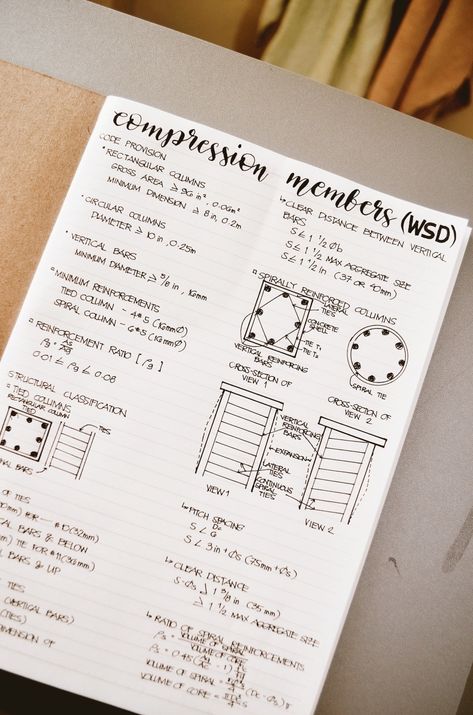 compression members (WSD)
CODE PROVISION
• RECTANGULAR COLUMNS
GROSS AREA ≥ 96 in², 0.06m²
MINIMUM DIMENSION ≥ 8 in, 0.2m
• CIRCULAR COLUMNS
DIAMETER ≥ 10 in, 0.25m
• VERTICAL BARS
MINIMUM DIAMETER ≥ 5/8 in, 16mm
▫ MINIMUM REINFORCEMENTS
TIED COLUMN - 4#5 (16mmØ)
SPIRAL COLUMN - 6#5 (16mmØ)
▫ REINFORCEMENT RATIO [ρg]
ρg = As/Ag
0.01 ≤ ρg ≤ 0.08
STRUCTURAL CLASSIFICATION
▫ TIED COLUMNS
RECTANGULAR COLUMN
TIED
TIES
NAL BARS
OF TIES
#10 (32mm)
AL BARS & BELOW
TIE FOR #11 (36mm)
AL BARS & UP
TIES
(VERTICAL BARS)
(TIES)
DIMENSION OF
↳ CLEAR DISTANCE BETWEEN VERTICAL
BARS
S ≤ 1 1/2 Øb
S ≤ 1 1/2 MAX AGGREGATE SIZE
S ≤ 1 1/2 in (37 OR 40mm)
▫ SPIRALLY REINFORCED COLUMNS
LATERAL
TIES
CONCRETE
SHELL
TIE
TIE
VERTICAL REINFORCING
BARS
SPIRAL TIE
CROSS-SECTION OF
VIEW 1
CROSS-SECTION OF
VIEW 2
VERTICAL
REINFORCING
BARS
EXPANSION
LATERAL
TIES
CONTINUOUS
SPIRAL
TIES
VIEW 1
VIEW 2
↳ PITCH SPACING
S ≤ Dc/6
S ≤ 3 in + Øs (75mm + Øs)
↳ CLEAR DISTANCE
S - Øs ≥ 1 3/8 in (35 mm)
≥ 1 1/2 MAX AGGREGATE SIZE
↳ RATIO OF SPIRAL REINFORCEMENTS
ρs = VOLUME OF SPIRAL/VOLUME OF CORE
ρs = 0.45 (Ag/Ac - 1)
VOLUME OF SPIRAL =
VOLUME OF CORE =